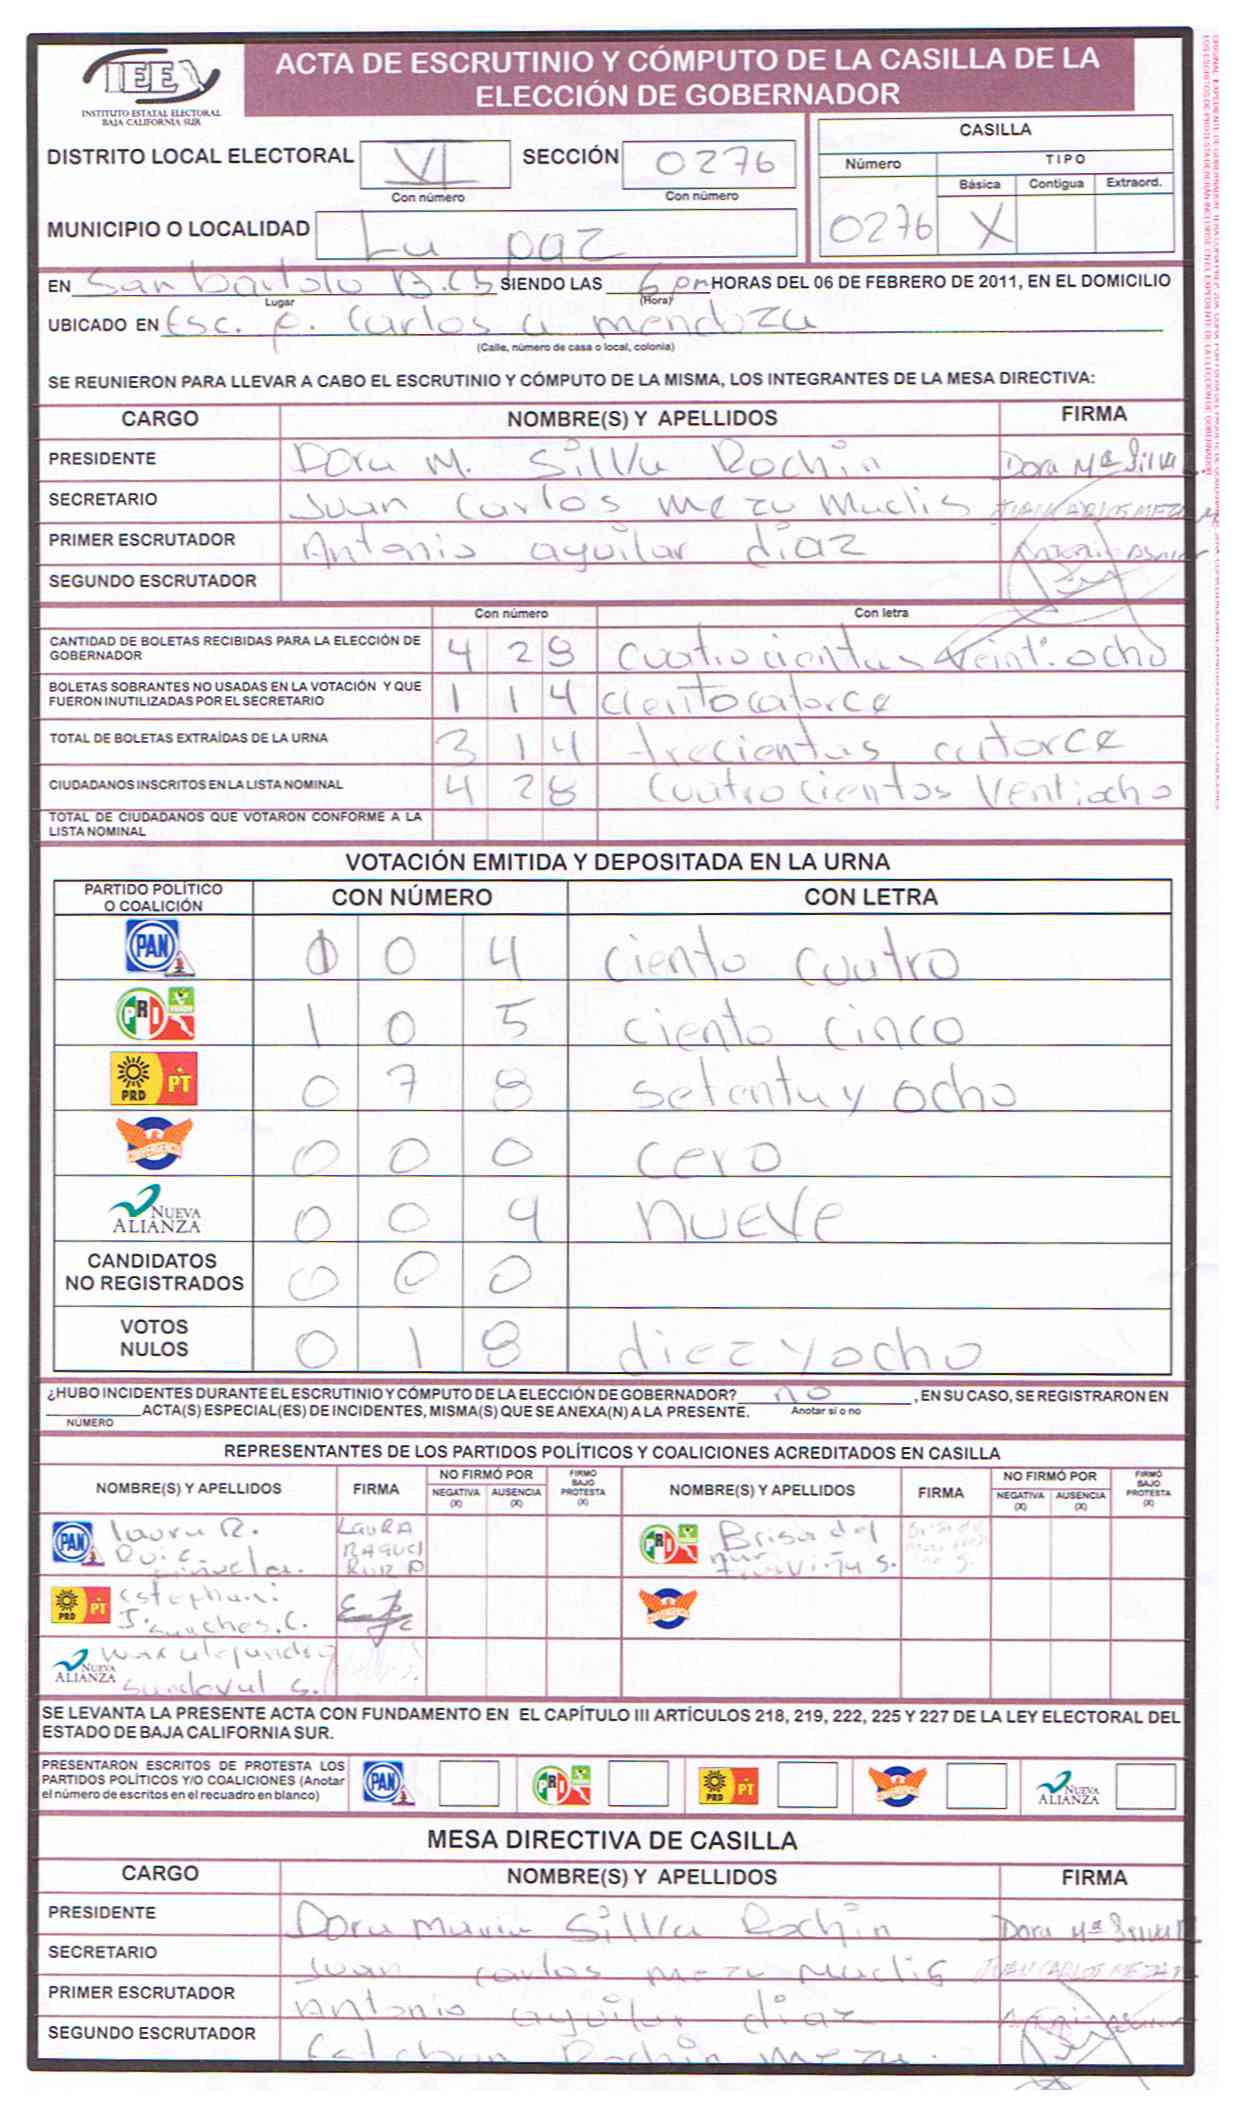 IEE
INSTITUTO ESTATAL ELECTORAL
BAJA CALIFORNIA SUR
ACTA DE ESCRUTINIO Y CÓMPUTO DE LA CASILLA DE LA
ELECCIÓN DE GOBERNADOR
DISTRITO LOCAL ELECTORAL VI SECCIÓN 0276
Con número Con número
CASILLA
Número TIPO
Básica Contigua Extraord.
0276 X
MUNICIPIO O LOCALIDAD La paz
EN San bartolo B.CS SIENDO LAS 6 pm HORAS DEL 06 DE FEBRERO DE 2011, EN EL DOMICILIO
Lugar (Hora)
UBICADO EN Esc. p. Carlos a mendoza
(Calle, número de casa o local, colonia)
SE REUNIERON PARA LLEVAR A CABO EL ESCRUTINIO Y CÓMPUTO DE LA MISMA, LOS INTEGRANTES DE LA MESA DIRECTIVA:
CARGO NOMBRE(S) Y APELLIDOS FIRMA
PRESIDENTE Dora M. Sillva Rochin Dora Mª Silva R.
SECRETARIO Juan Carlos meza Maclis JUAN CARLOS MEZA M
PRIMER ESCRUTADOR Antonio aguilar diaz
SEGUNDO ESCRUTADOR
Con número Con letra
CANTIDAD DE BOLETAS RECIBIDAS PARA LA ELECCIÓN DE
GOBERNADOR 4 2 8 Cuatrocientas veinti ocho
BOLETAS SOBRANTES NO USADAS EN LA VOTACIÓN Y QUE
FUERON INUTILIZADAS POR EL SECRETARIO 1 1 4 cientocatorce
TOTAL DE BOLETAS EXTRAÍDAS DE LA URNA 3 1 4 trecientas catorce
CIUDADANOS INSCRITOS EN LA LISTA NOMINAL 4 2 8 Cuatrocientos Ventiocho
TOTAL DE CIUDADANOS QUE VOTARON CONFORME A LA
LISTA NOMINAL
VOTACIÓN EMITIDA Y DEPOSITADA EN LA URNA
PARTIDO POLÍTICO
O COALICIÓN CON NÚMERO CON LETRA
PAN 1 0 4 ciento cuatro
PRI VERDE 1 0 5 ciento cinco
PRD PT 0 7 8 setenta y ocho
0 0 0 cero
NUEVA ALIANZA 0 0 9 nueve
CANDIDATOS
NO REGISTRADOS 0 0 0
VOTOS
NULOS 0 1 8 diez y ocho
¿HUBO INCIDENTES DURANTE EL ESCRUTINIO Y CÓMPUTO DE LA ELECCIÓN DE GOBERNADOR? no , EN SU CASO, SE REGISTRARON EN
ACTA(S) ESPECIAL(ES) DE INCIDENTES, MISMA(S) QUE SE ANEXA(N) A LA PRESENTE. Anotar si o no
NÚMERO
REPRESENTANTES DE LOS PARTIDOS POLÍTICOS Y COALICIONES ACREDITADOS EN CASILLA
NOMBRE(S) Y APELLIDOS FIRMA NO FIRMÓ POR FIRMÓ BAJO PROTESTA (X) NOMBRE(S) Y APELLIDOS FIRMA NO FIRMÓ POR FIRMÓ BAJO PROTESTA (X)
NEGATIVA (X) AUSENCIA (X) NEGATIVA (X) AUSENCIA (X)
PAN laura R. LAURA RAQUEL PRI Brisa del
mar
PRD PT Estephani
J. Sanches. C.
NUEVA ALIANZA alejandro
Sandoval S.
SE LEVANTA LA PRESENTE ACTA CON FUNDAMENTO EN EL CAPÍTULO III ARTÍCULOS 218, 219, 222, 225 Y 227 DE LA LEY ELECTORAL DEL
ESTADO DE BAJA CALIFORNIA SUR.
PRESENTARON ESCRITOS DE PROTESTA LOS
PARTIDOS POLÍTICOS Y/O COALICIONES (Anotar
el número de escritos en el recuadro en blanco)
PAN PRI PRD PT NUEVA ALIANZA
MESA DIRECTIVA DE CASILLA
CARGO NOMBRE(S) Y APELLIDOS FIRMA
PRESIDENTE Dora Maria Sillva Rochin Dora Mª Silva R.
SECRETARIO Juan carlos meza Maclis JUAN CARLOS MEZA
PRIMER ESCRUTADOR Antonio aguilar diaz
SEGUNDO ESCRUTADOR Esteban Rochin meza.